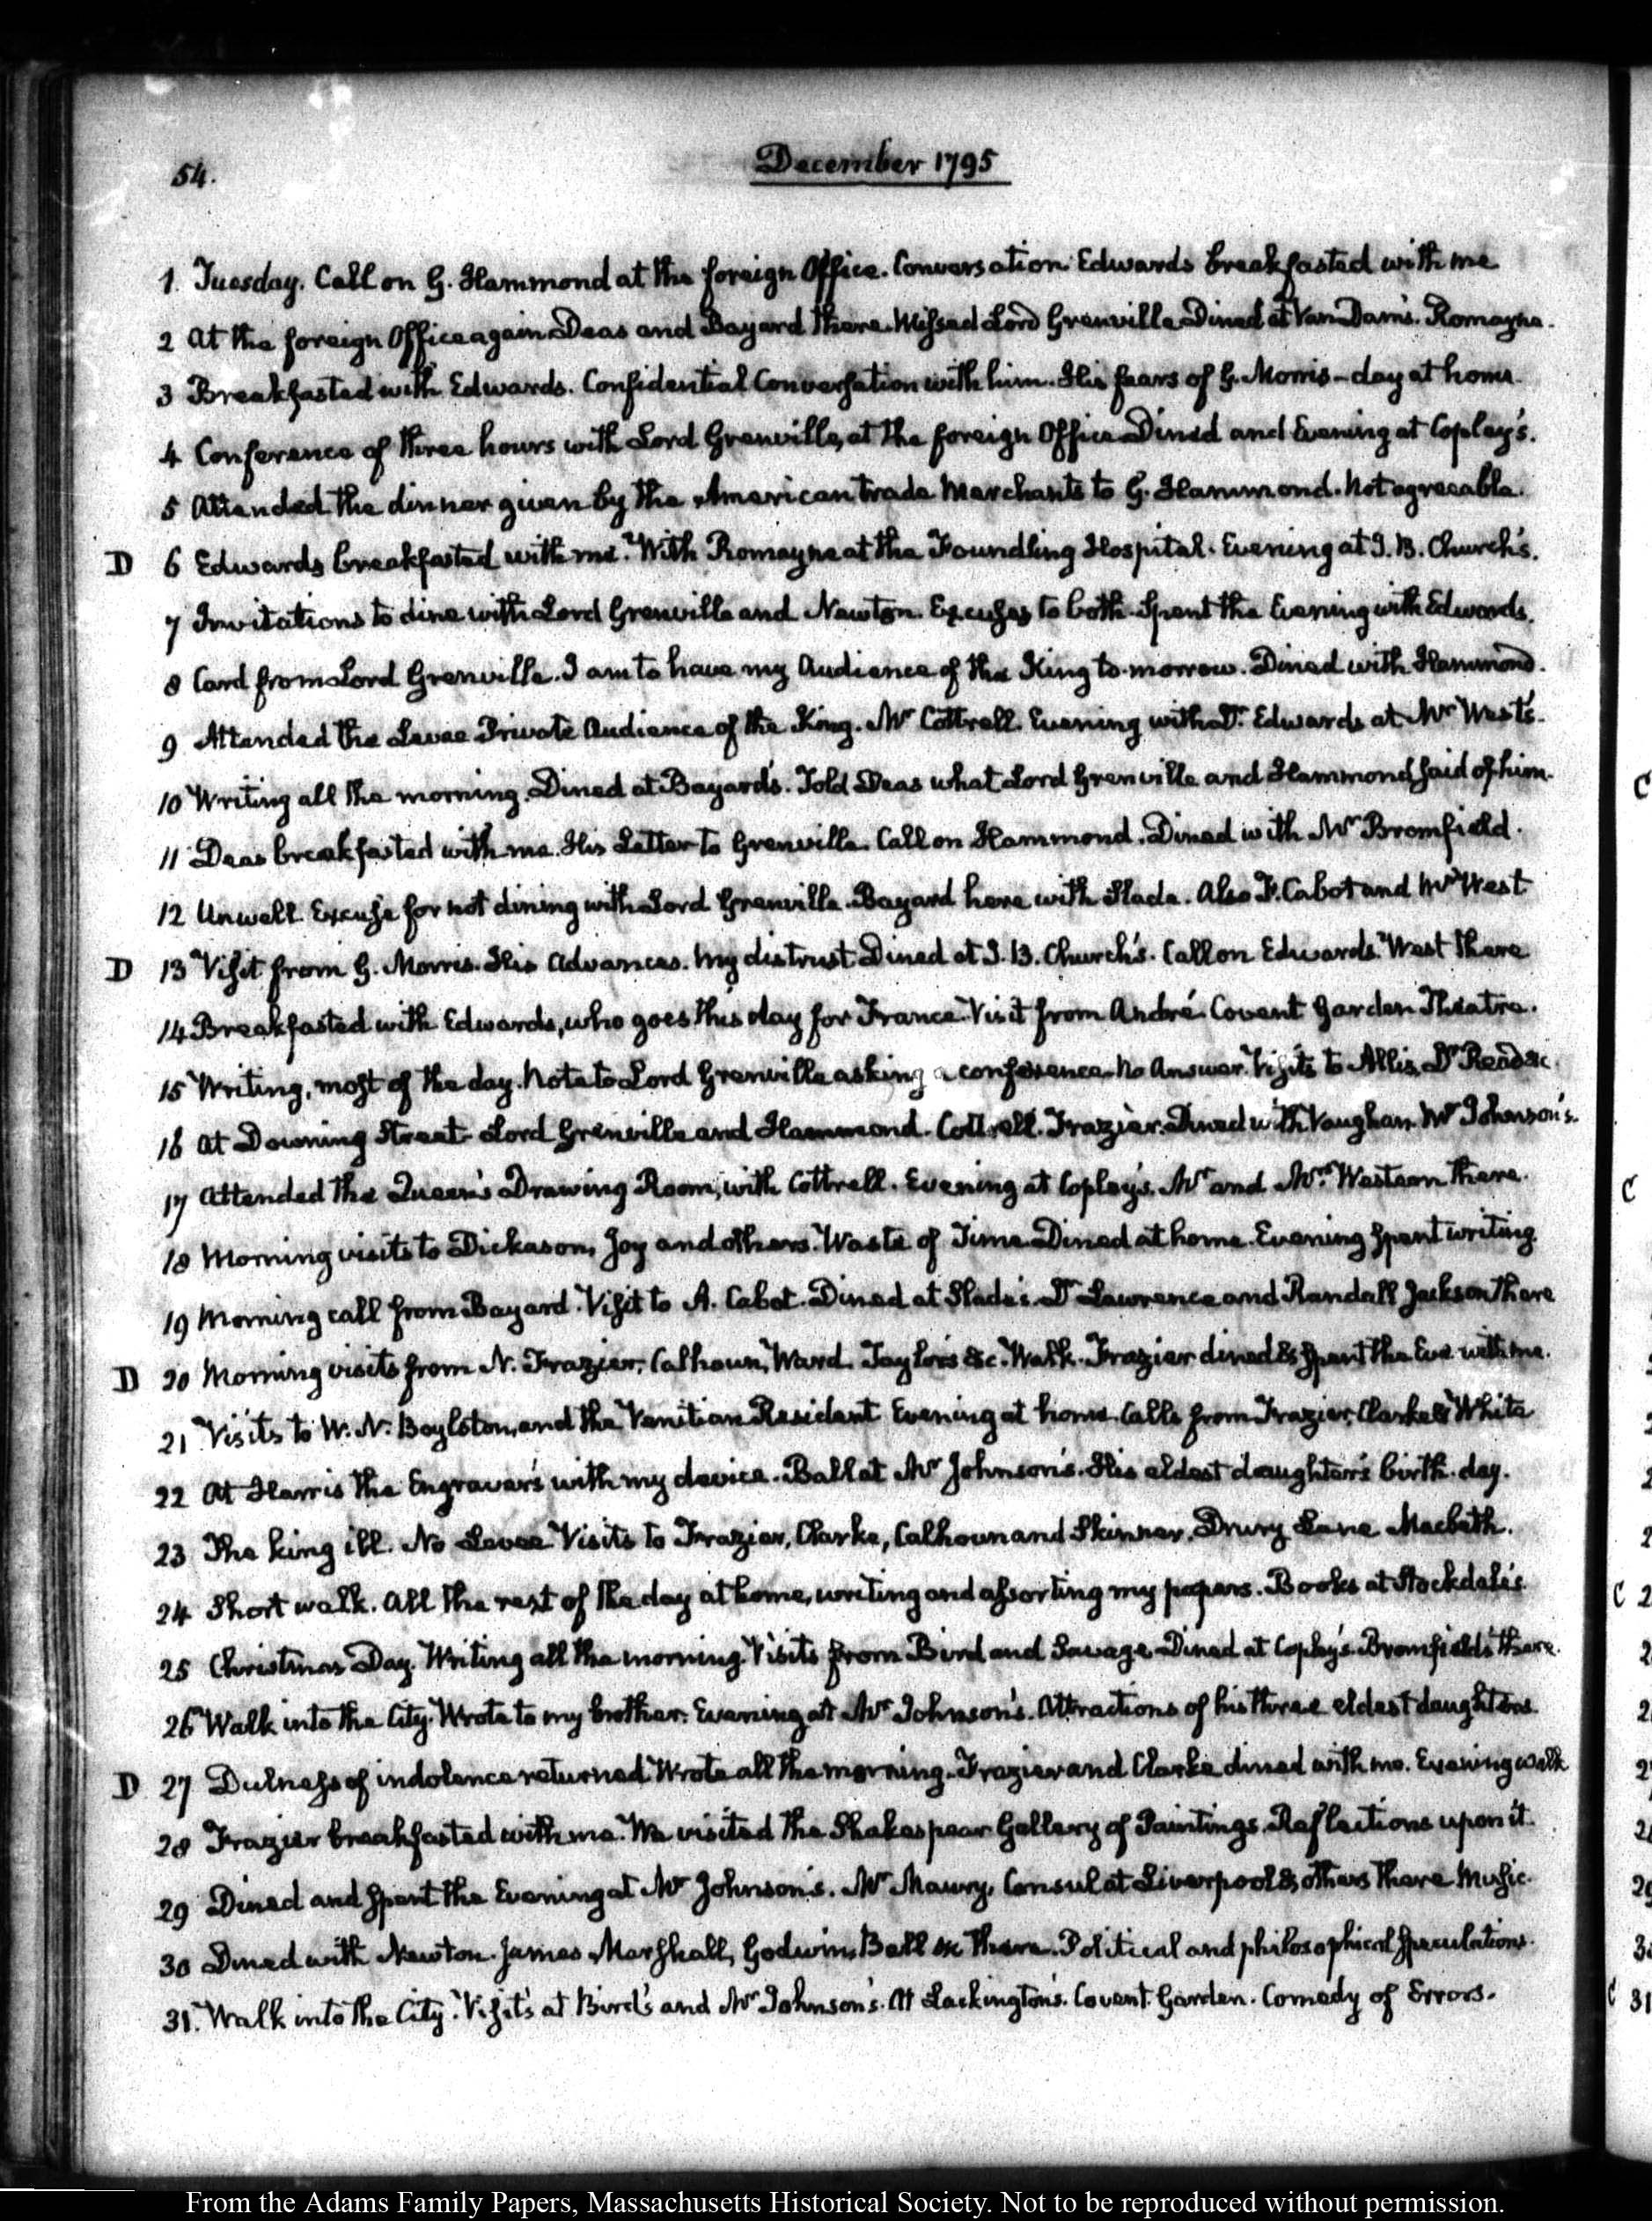 54.
December 1795
1. Tuesday. Call on G. Hammond at the foreign Office. Conversation Edwards breakfasted with me
2 At the foreign Office again Deas and Bayard there. Missed Lord Grenville Dined at Van Dam's. Romayne.
3 Breakfasted with Edwards. Confidential Conversation with him. His fears of G. Morris—day at home.
4 Conference of three hours with Lord Grenville, at the foreign Office Dined and Evening at Copley's.
5 Attended the dinner given by the American trade Merchants to G. Hammond. Not agreeable.
D 6 Edwards breakfasted with me. With Romayne at the Foundling Hospital. Evening at J. B. Church's.
7 Invitations to dine with Lord Grenville and Newton. Excuses to both. Spent the Evening with Edwards.
8 Card from Lord Grenville. I am to have my Audience of the King to-morrow. Dined with Hammond.
9 Attended the Levee Private Audience of the King. Mr Cottrell. Evening with Dr. Edwards at Mr West's.
10 Writing all the morning. Dined at Bayard's. Told Deas what Lord Grenville and Hammond said of him.
11 Deas breakfasted with me. His Letter to Grenville. Call on Hammond. Dined with Mr Bromfield.
12 Unwell. Excuse for not dining with Lord Grenville. Bayard here with Slade. Also F. Cabot and Mr West
D 13 Visit from G. Morris. His Advances. My distrust Dined at J. B. Church's. Call on Edwards. West there
14 Breakfasted with Edwards, who goes this day for France. Visit from André. Covent Garden Theatre.
15 Writing, most of the day. Note to Lord Grenville asking a conference. No Answer. Visits to Allis, Dr
16 At Downing Street. Lord Grenville and Hammond. Cottrell. Frazier. Dined with Vaughan. Mr Johnson's.
17 Attended the Queen's Drawing Room, with Cottrell. Evening at Copley's. Mr and Mrs Western there.
18 Morning visits to Dickason, Joy and others. Waste of Time Dined at home. Evening spent writing.
19 Morning call from Bayard. Visit to A. Cabot. Dined at Slade's. Dr Lawrence and Randall Jackson there
D 20 Morning visits from N. Frazier, Calhoun, Ward. Taylor's &c. Walk. Frazier dined & spent the Eve with me.
21 Visits to W. N. Boylston, and the Venitian Resident. Evening at home. Calls from Frazier, Clarke & White
22 At Harris the Engraver's with my device. Ball at Mr Johnson's. His eldest daughter's birth-day.
23 The king ill. No Levee Visits to Frazier, Clarke, Calhoun and Skinner. Drury Lane Macbeth.
24 Short walk. All the rest of the day at home, writing and assorting my papers. Books at Stockdale's.
25 Christmas Day. Writing all the morning. Visits from Bird and Savage Dined at Copley's. Bromfields there.
26 Walk into the City. Wrote to my brother. Evening at Mr Johnson's. Attractions of his three eldest daughters.
D 27 Dulness of indolence returned. Wrote all the morning. Frazier and Clarke dined with me. Evening walk
28 Frazier breakfasted with me. We visited the Shakespear Gallery of Paintings. Reflections upon it.
29 Dined and spent the Evening at Mr Johnson's. Mr Maury, Consul at Liverpool & others there Music.
30 Dined with Newton. James Marshall, Godwin, Bell &c there. Political and philosophical speculations.
31. Walk into the City. Visits at Bird's and Mr Johnson's. At Lackington's. Covent Garden. Comedy of Errors.
From the Adams Family Papers, Massachusetts Historical Society. Not to be reproduced without permission.